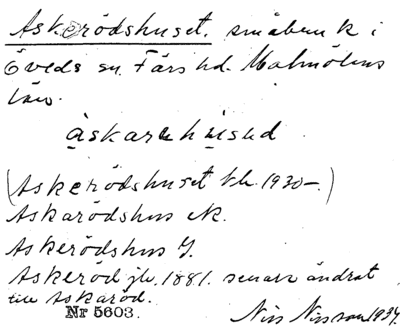 Askerödshuset. småbruk i
Öveds sn. Färs hd. Malmöhus
län.
(Askerödshuset kb. 1930-.)
Askarödshus ek.
Askerödshus J.
Askeröd jb. 1881. senare ändrat
till Askaröd.
Nr 5603.
Nils Nilsson 1934.